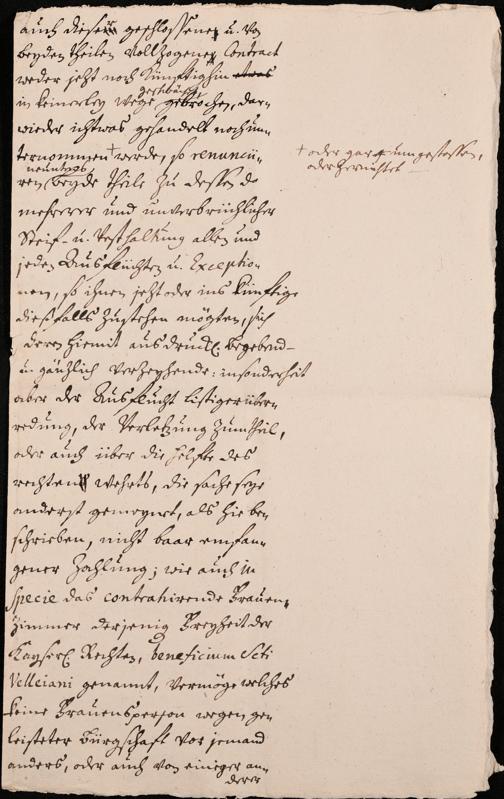 auch dieser geschlossener u. von
beyden theilen vollzogener Contract
weder jetzt noch künftighin etwas
in keinerley wege gebrochen, dar-
wieder ichtwas gehandelt noch un-
ternommen + werde, so renuncii-
+ oder gar umgestossen,
oder zernichtet
ren beyde theile zu dessen de
mehrerer und unverbrüchlicher
Steif- u. Vesthaltung allen und
jeden Ausflüchten u. Exceptio-
nen, so ihnen jetzt oder ins künftige
dießfalls zustehen mögten, sich
deren hiemit ausdrückl. begebend-
u. gäntzlich verzeyhende: insonderheit
aber der Ausflucht listiger über-
redung, der Verletzung zum theil,
oder auch über die helfte des
rechten wehrts, die sache seye
anderst gemeynt, als hie be-
schrieben, nicht baar empfan-
gener Zahlung; wie auch in
specie das contrahirende Frauen-
zimmer derjenig Freyheit der
Kayserl. Rechten, beneficium Scti
Velleiani genannt, vermöge welches
keine Frauensperson wegen ge-
leisteter Bürgschaft vor jemand
anders, oder auch von einiger an-
derer